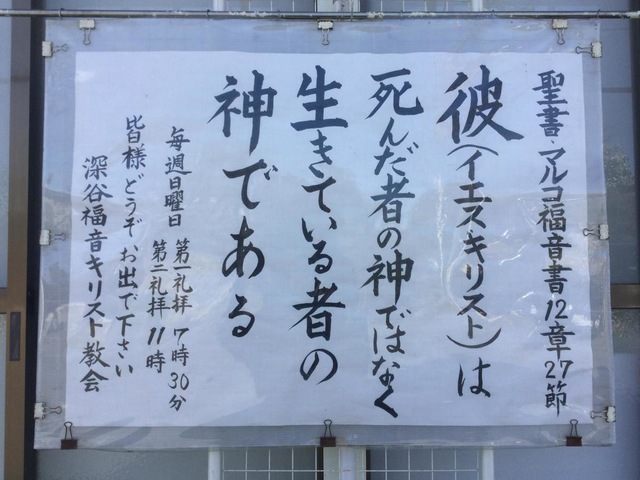 聖書・マルコ福音書12章27節
彼(イエスキリスト)は
死んだ者の神ではなく
生きている者の
神である
毎週日曜日 第一礼拝 7時30分
第二礼拝 11時
皆様どうぞお出で下さい
深谷福音キリスト教会